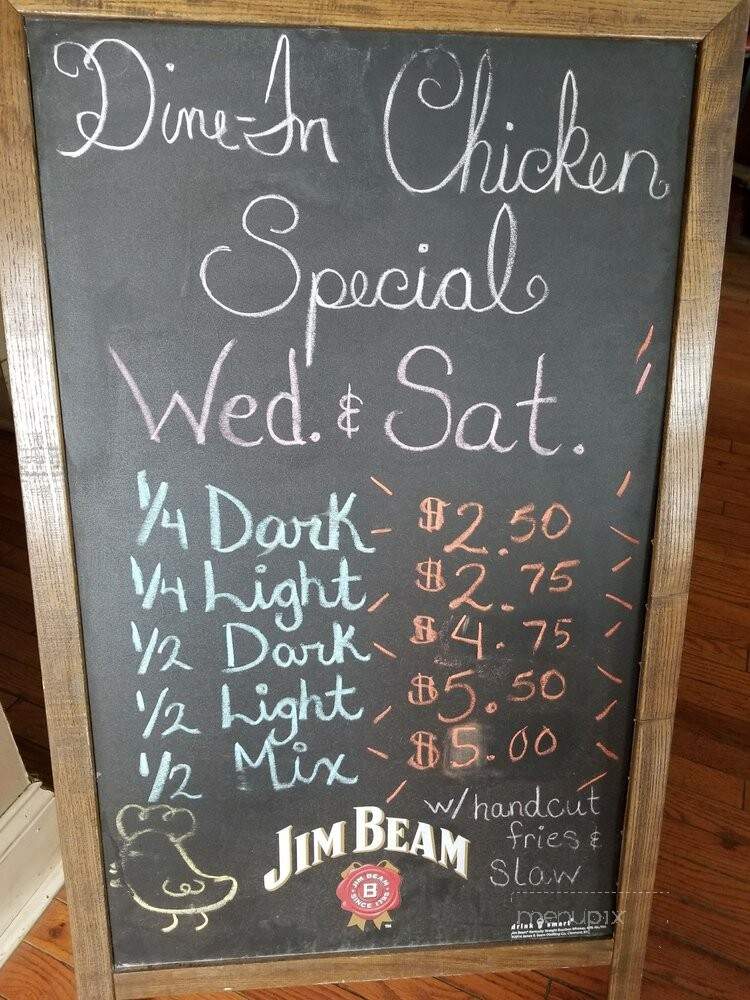 Dine-In Chicken
Special
Wed. & Sat.
1/4 Dark $2.50
1/4 Light $2.75
1/2 Dark $4.75
1/2 Light $5.50
1/2 Mix $5.00
w/handcut
fries &
Slaw
JIM BEAM
JIM BEAM
B
SINCE 1795
TM
menupix
drink smart